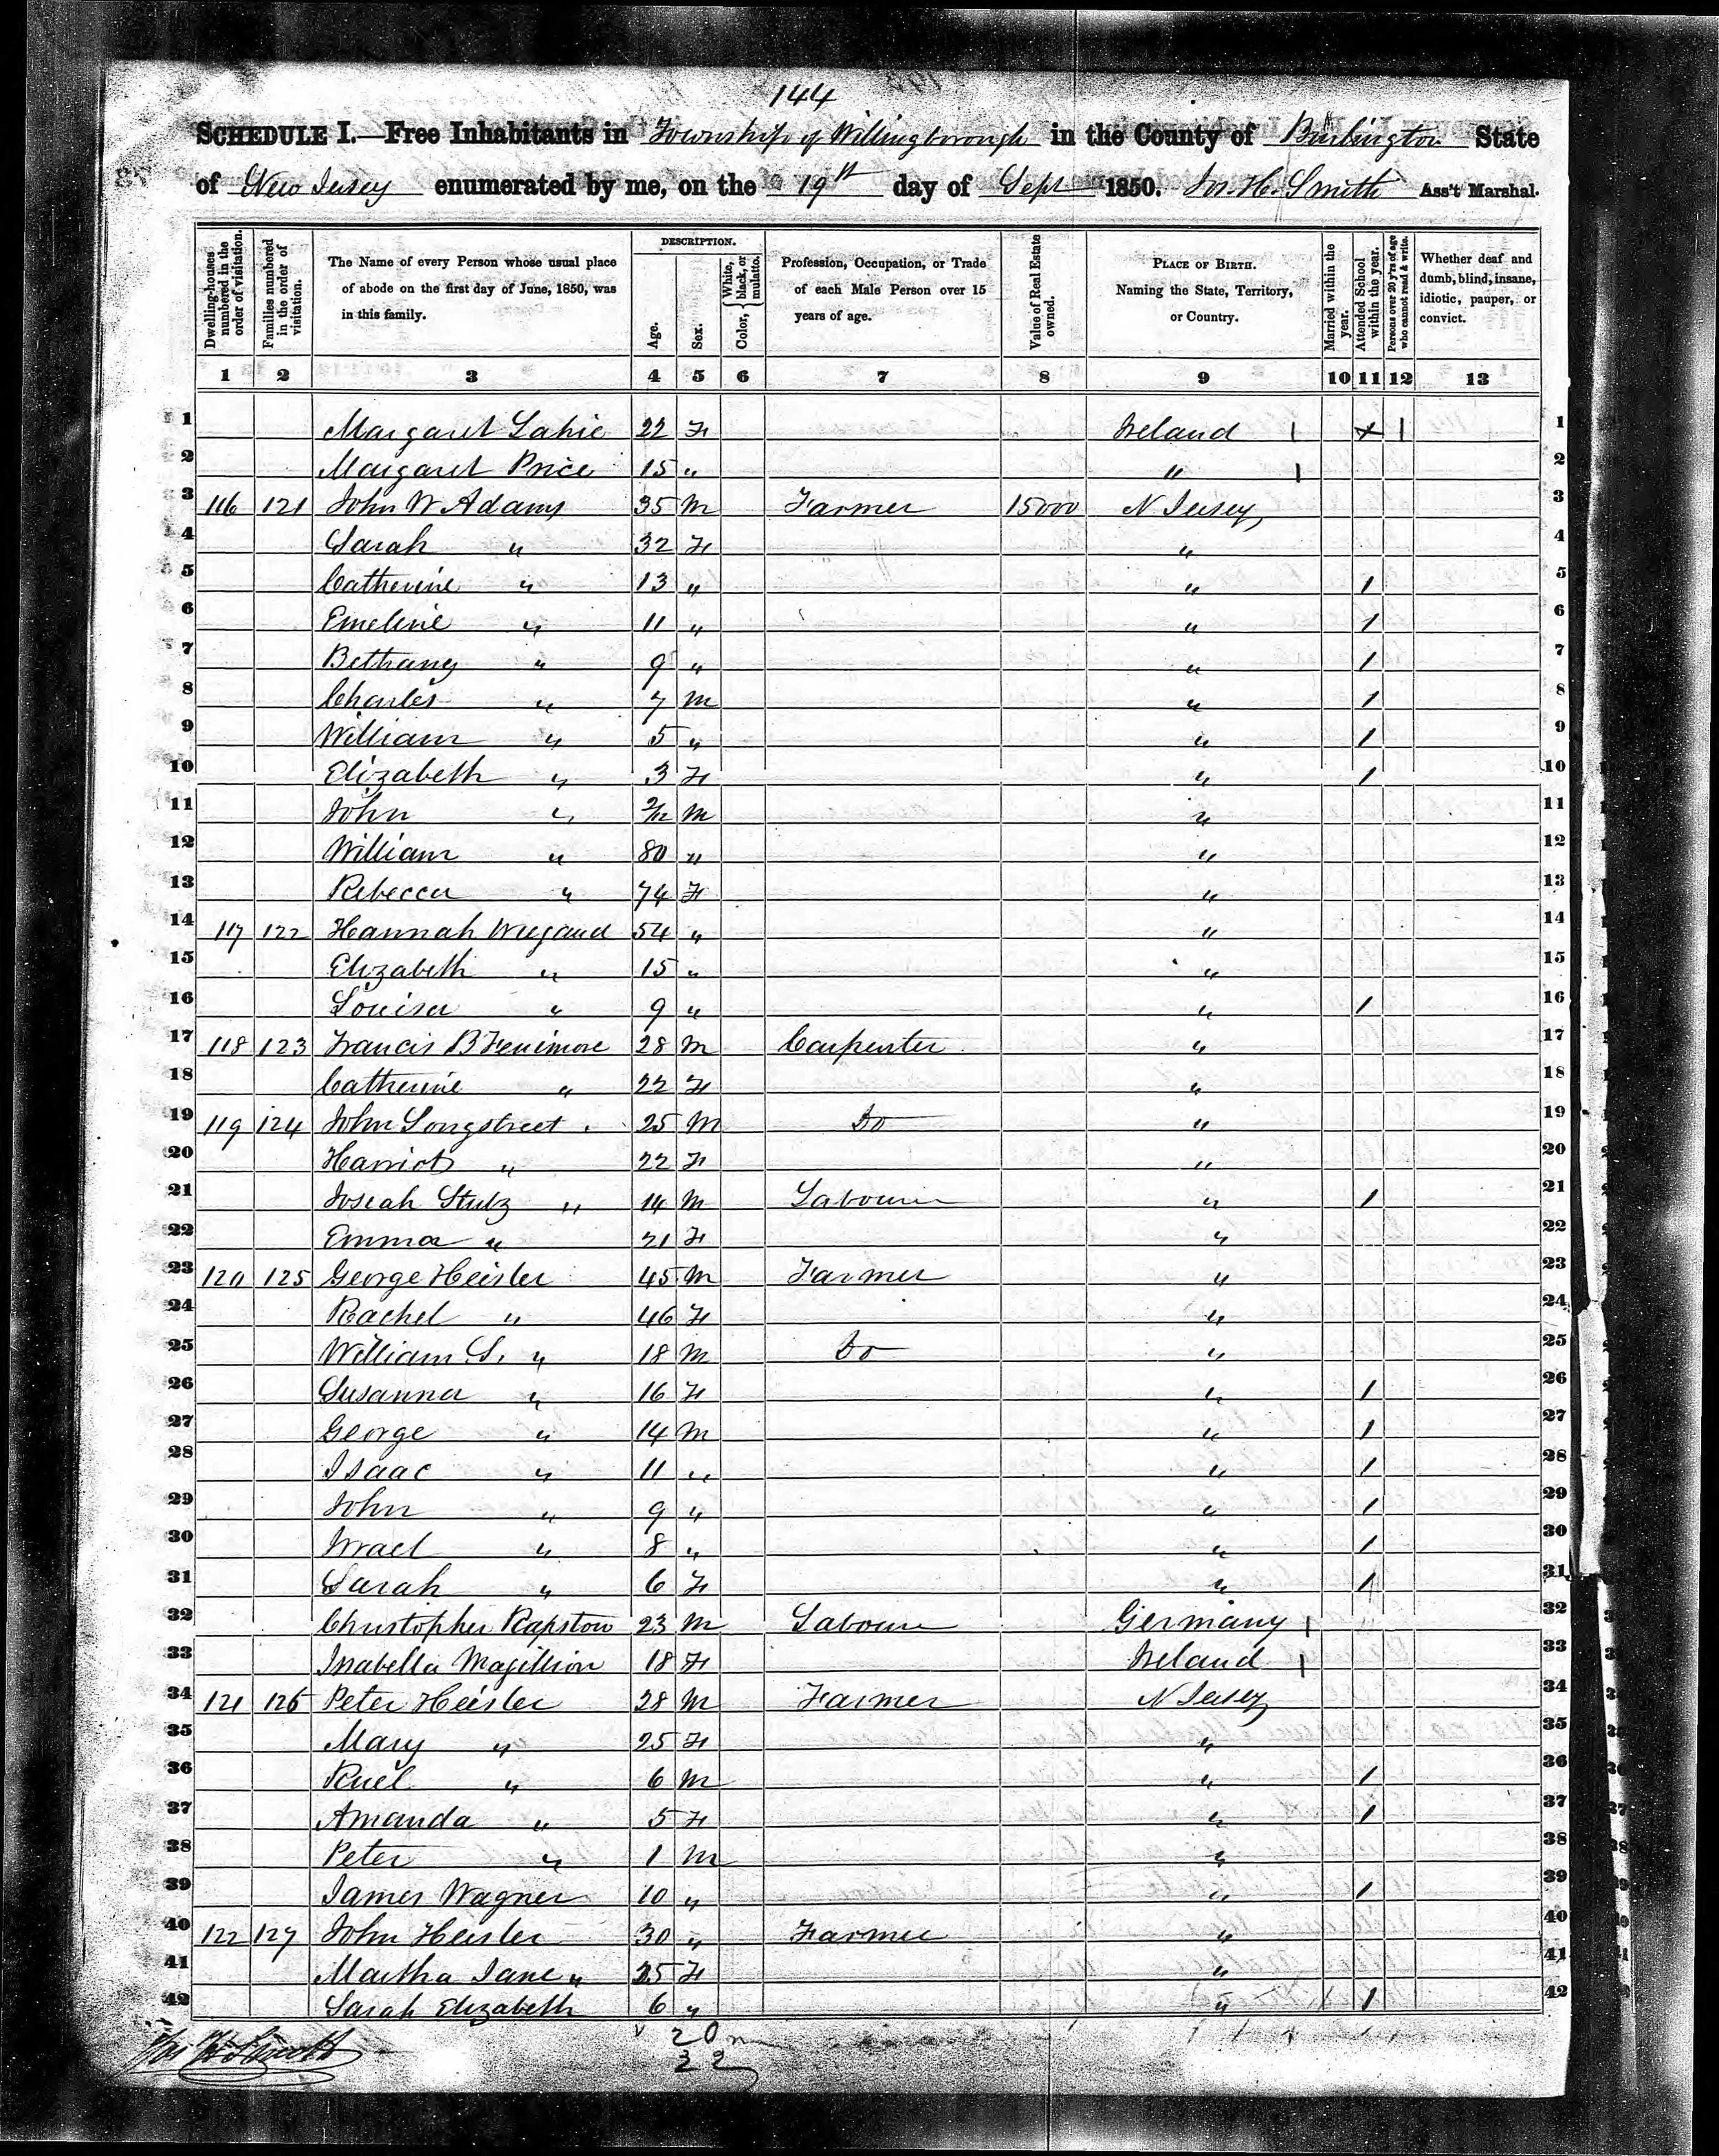 144
SCHEDULE I.—Free Inhabitants in Township of Willingborough in the County of Burlington State
of New Jersey enumerated by me, on the 19th day of Sept 1850. Jos. H. Smith Ass't Marshal.
Dwelling-houses numbered in the order of visitation.
Families numbered in the order of visitation.
The Name of every Person whose usual place of abode on the first day of June, 1850, was in this family.
DESCRIPTION.
Age.
Sex.
Color, { White, black, or mulatto.
Profession, Occupation, or Trade of each Male Person over 15 years of age.
Value of Real Estate owned.
PLACE OF BIRTH. Naming the State, Territory, or Country.
Married within the year.
Attended School within the year.
Persons over 20 y'rs of age who cannot read & write.
Whether deaf and dumb, blind, insane, idiotic, pauper, or convict.
1 2 3 4 5 6 7 8 9 10 11 12 13
1 Margaret Lahie 22 F Ireland 1 1 1
2 Margaret Price 15 " " 1 2
3 116 121 John W Adams 35 M Farmer 15000 N Jersey 3
4 Sarah " 32 F " 4
5 Catherine " 13 " " 1 5
6 Emeline " 11 " " 1 6
7 Bethany " 9 " " 1 7
8 Charles " 7 M " 1 8
9 William " 5 " " 1 9
10 Elizabeth " 3 F " 1 10
11 John " 2/12 M " 11
12 William " 80 " " 12
13 Rebecca " 74 F " 13
14 117 122 Hannah 54 " " 14
15 Elizabeth " 15 " " 15
16 Louisa " 9 " " 1 16
17 118 123 Francis B Fenimore 28 M Carpenter " 17
18 Catherine " 22 F " 18
19 119 124 John Longstreet 25 M Do " 19
20 Harriot " 22 F " 20
21 Josiah Stutz " 14 M Labourer " 1 21
22 Emma " 21 F " 22
23 120 125 George Heisler 45 M Farmer " 23
24 Rachel " 46 F " 24
25 William S. " 18 M Do " 25
26 Susanna " 16 F " 1 26
27 George " 14 M " 1 27
28 Isaac " 11 " " 1 28
29 John " 9 " " 1 29
30 Israel " 8 " " 1 30
31 Sarah " 6 F " 1 31
32 Christopher Rapston 23 M Labourer Germany 1 32
33 Isabella Magillion 18 F Ireland 1 33
34 121 126 Peter Heisler 28 M Farmer N Jersey 34
35 Mary " 25 F " 35
36 Ruel " 6 M " 1 36
37 Amanda " 5 F " 1 37
38 Peter " 1 M " 38
39 James Wagner 10 " " 1 39
40 122 127 John Heisler 30 " Farmer " 40
41 Martha Jane " 25 F " 41
42 Sarah Elizabeth 6 " " 1 42
20 m
22